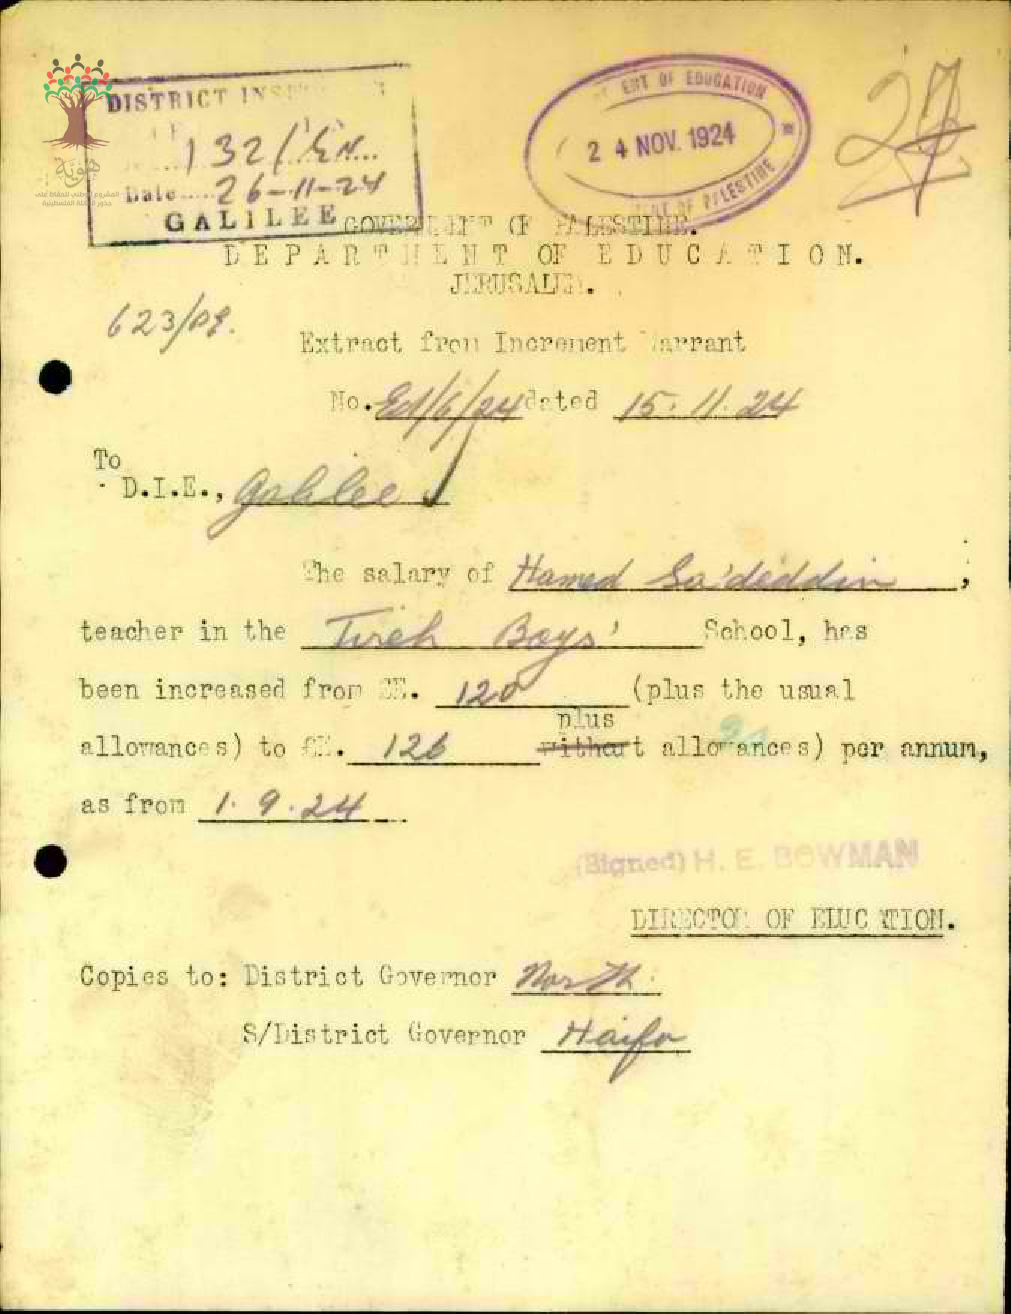 هوية
المشروع الوطني للحفاظ على
جذور العائلة الفلسطينية
DISTRICT
132/
Date 26-11-24
GALILEE
ENT OF EDUCATION
24 NOV. 1924
ENT OF PALESTINE
GOVERNMENT OF PALESTINE.
DEPARTMENT OF EDUCATION.
JERUSALEM.
623/
Extract from Increment Warrant
No. Ed/6/24 dated 15.11.24
To
D.I.E., Galilee
The salary of Hamed Sa'deddin,
teacher in the Tireh Boys' School, has
been increased from £E. 120 (plus the usual
plus
allowances) to £E. 126 without allowances) per annum,
as from 1.9.24
(Signed) H. E. BOWMAN
DIRECTOR OF EDUCATION.
Copies to: District Governor North.
S/District Governor Haifa